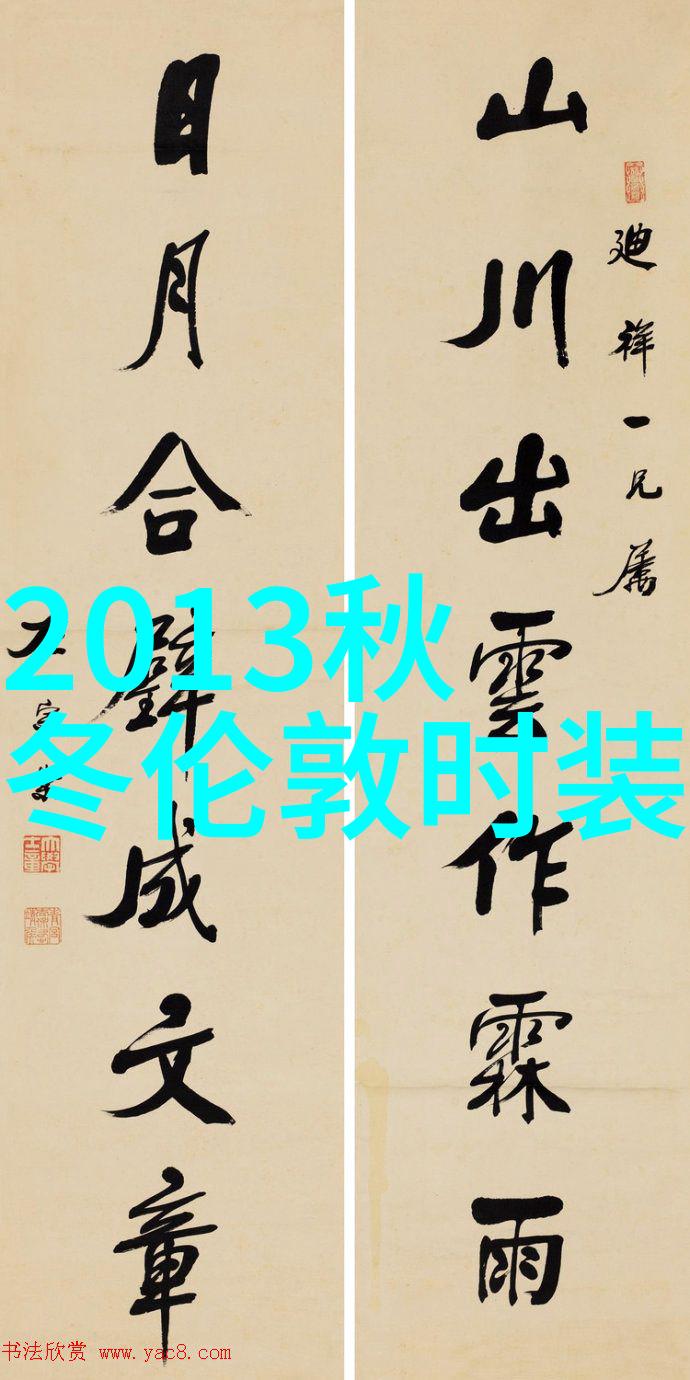 山川出雲作霖雨
廸祥一兄属
日月合璧成文章
2013秋
冬伦敦时装
书法欣赏 www.yac8.com